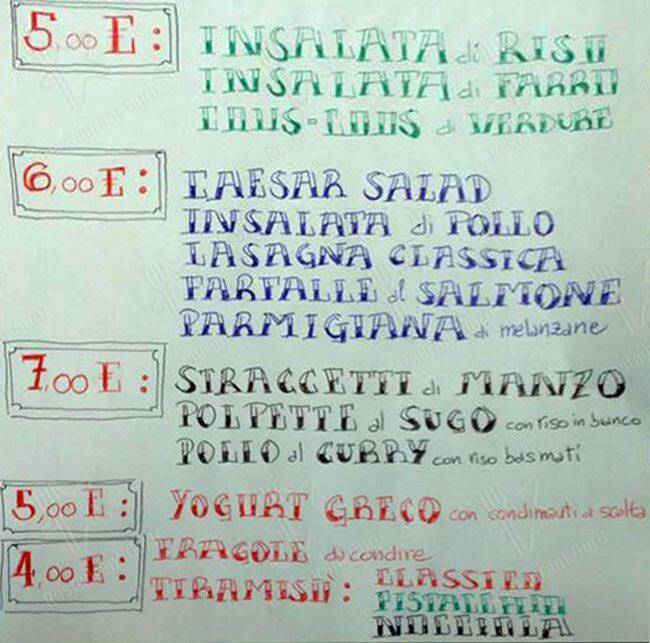 5,00 E: INSALATA di RISO
INSALATA di FARRO
COUS-COUS di VERDURE
6,00 E: CAESAR SALAD
INSALATA di POLLO
LASAGNA CLASSICA
FARFALLE al SALMONE
PARMIGIANA di melanzane
7,00 E: STRACCETTI di MANZO
POLPETTE al SUGO con riso in bianco
POLLO al CURRY con riso basmati
5,00 E: YOGURT GRECO con condimenti a scelta
4,00 E: FRAGOLE da condire
TIRAMISÙ: CLASSICO
PISTACCHIO
NOCCIOLA